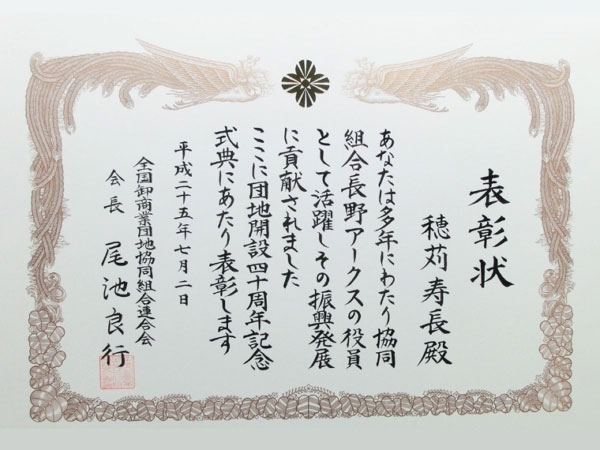 表彰状
穂苅寿長殿
あなたは多年にわたり協同
組合長野アークスの役員
として活躍しその振興発展
に貢献されました
ここに団地開設四十周年記念
式典にあたり表彰します
平成二十五年七月二日
全国卸商業団地協同組合連合会
会長 尾池良行